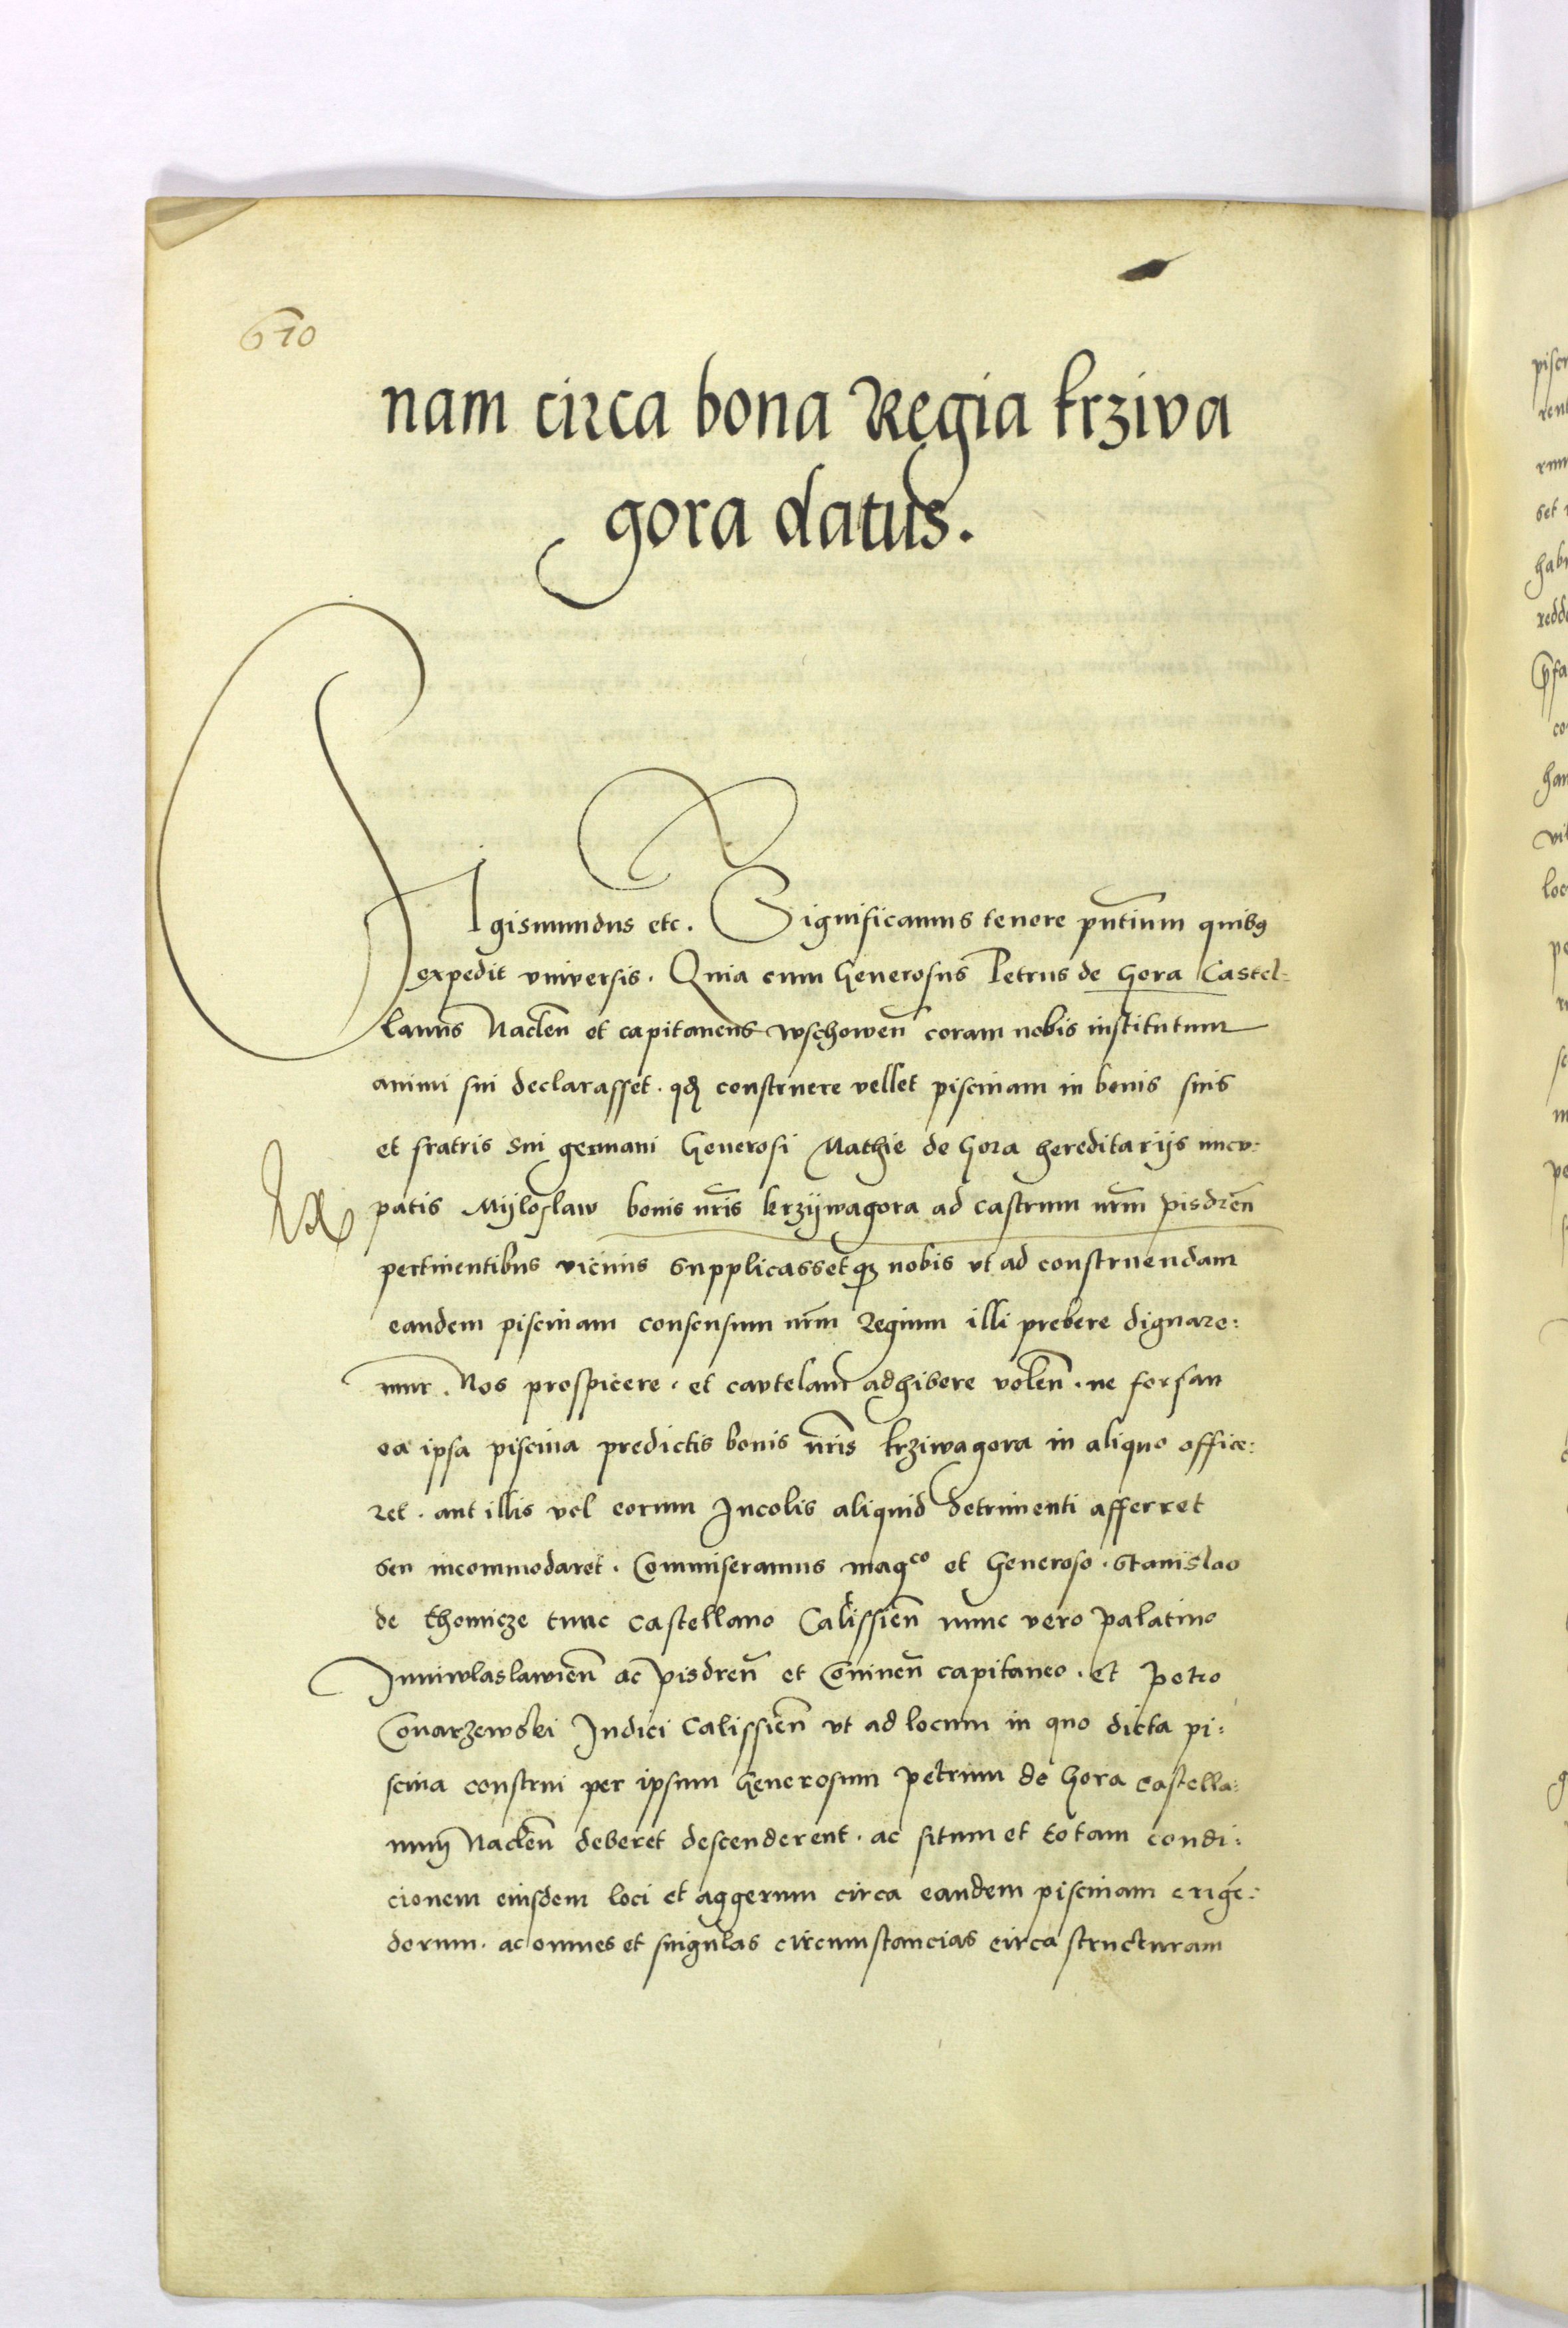 670
nam circa bona Regia krziva
gora datus.
Sigismundus etc. Significamus tenore pñtium quibus
expedit vniversis. Quia cum Generosus Petrus de Gora Castel-
lanus Naclen̄ et capitaneus wschowen̄ coram nobis institutum
animi sui declarasset. qđ construere vellet piscinam in bonis suis
et fratris sui germani Generosi Mathie de Gora hereditarijs nncu-
patis Mijloslaw bonis nr̄is krzijwagora ad castrum nr̄m pisdren̄
pertinentibus vicinis supplicassetqȝ nobis vt ad construendam
eandem piscinam consensum nr̄m Regium illi prebere dignare:
mur. Nos prospicere. et cautelam adhibere volen̄. ne forsan
ea ipsa piscina predictis bonis nr̄is krziwagora in aliquo office:
ret. aut illis vel eorum Incolis aliquid detrimenti afferret
seu incommodaret. Commiseramus magco et Generoso. Stanislao
de thomicze tunc castellano Calissien̄ nunc vero palatino
Juniwlaslawien̄ ac pisdren̄ et Coninen̄ capitaneo. et petro
Conarzewski Iudici Calissien̄ vt ad locum in quo dicta pi:
scina construi per ipsum Generosum petrum de Gora castella:
num Naclen̄ deberet descenderent. ac situm et totam condi:
cionem eiusdem loci et aggerum circa eandem piscinam erigē:
dorum. ac omnes et singulas circumstancias circa structuram